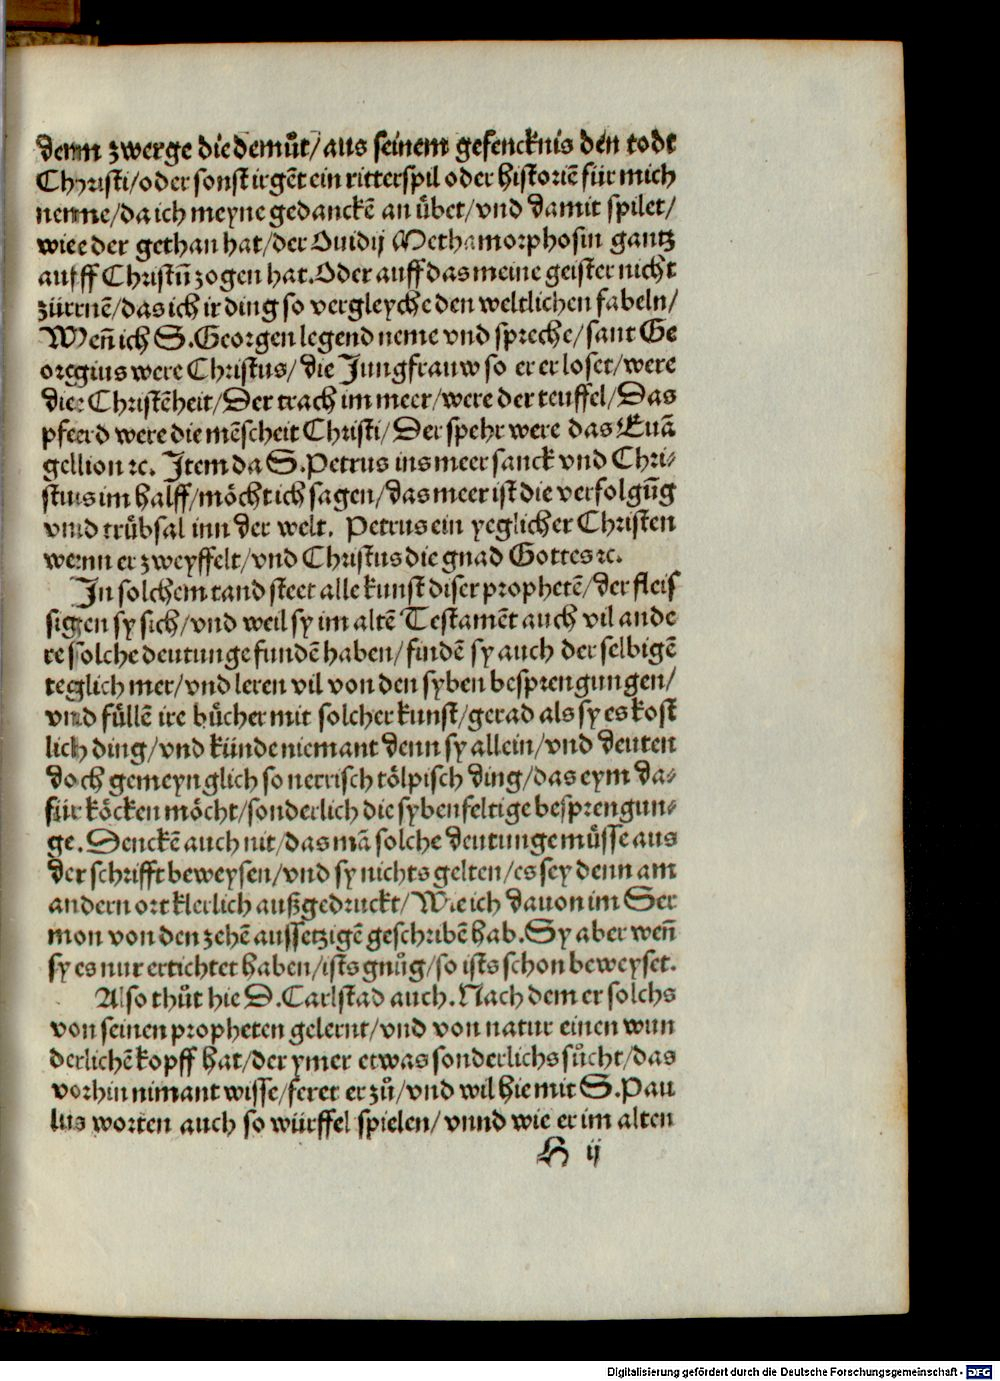 denn zwerge die demuͤt/ aus seinem gefencknis den todt
Christi/ oder sonst irgẽt ein ritterspil oder historiẽ für mich
neme/ da ich meyne gedanckẽ an uͤbet/ vnd damit spilet/
wie der gethan hat/ der Ouidij Methamorphosin gantz
auff Christũ zogen hat. Oder auff das meine geister nicht
zürnẽ/ das ich ir ding so vergleyche den weltlichen fabeln/
Weñ ich S. Georgen legend neme vnd spreche/ sant Ge
orgius were Christus/ die Jungfrauw so er erloset/ were
die Christẽheit/ Der trach im meer/ were der teuffel/ Das
pferd were die mẽscheit Christi/ Der spehr were das Euã
gelion ꝛc. Item da S. Petrus ins meer sanck vnd Chri⸗
stus im halff/ moͤcht ich sagen/ das meer ist die verfolgũg
vnd truͤbsal inn der welt. Petrus ein yeglicher Christen
wenn er zweyffelt/ vnd Christus die gnad Gottes ꝛc.
In solchem tand steet alle kunst diser prophetẽ/ der fleis
sigen sy sich/ vnd weil sy im altẽ Testamẽt auch vil ande
re solche deutunge fundẽ haben/ findẽ sy auch der selbigẽ
teglich mer/ vnd leren vil von den syben besprengungen/
vnd füllẽ ire buͤcher mit solcher kunst/ gerad als sy es kost
lich ding/ vnd künde niemant denn sy allein/ vnd deuten
doch gemeynglich so nerrisch toͤlpisch ding/ das eym da⸗
für koͤcken moͤcht/ sonderlich die sybenfeltige besprengun⸗
ge. Denckẽ auch nit/ das mã solche deutunge muͤsse aus
der schrifft beweysen/ vnd sy nichts gelten/ es sey denn am
andern ort klerlich außgedruckt/ Wie ich dauon im Ser
mon von den zehẽ aussetzigẽ geschribẽ hab. Sy aber weñ
sy es nur ertichtet haben/ ists gnuͦg/ so ists schon beweyset.
Also thuͦt hie D. Carlstad auch. Nach dem er solchs
von seinen propheten gelernt/ vnd von natur einen wun
derlichẽ kopff hat/ der ymer etwas sonderlichs suͦcht/ das
vorhin nimant wisse/ feret er zuͦ/ vnd wil hie mit S. Pau
lus worten auch so würffel spielen/ vnnd wie er im alten
H ij
Digitalisierung gefördert durch die Deutsche Forschungsgemeinschaft - DFG